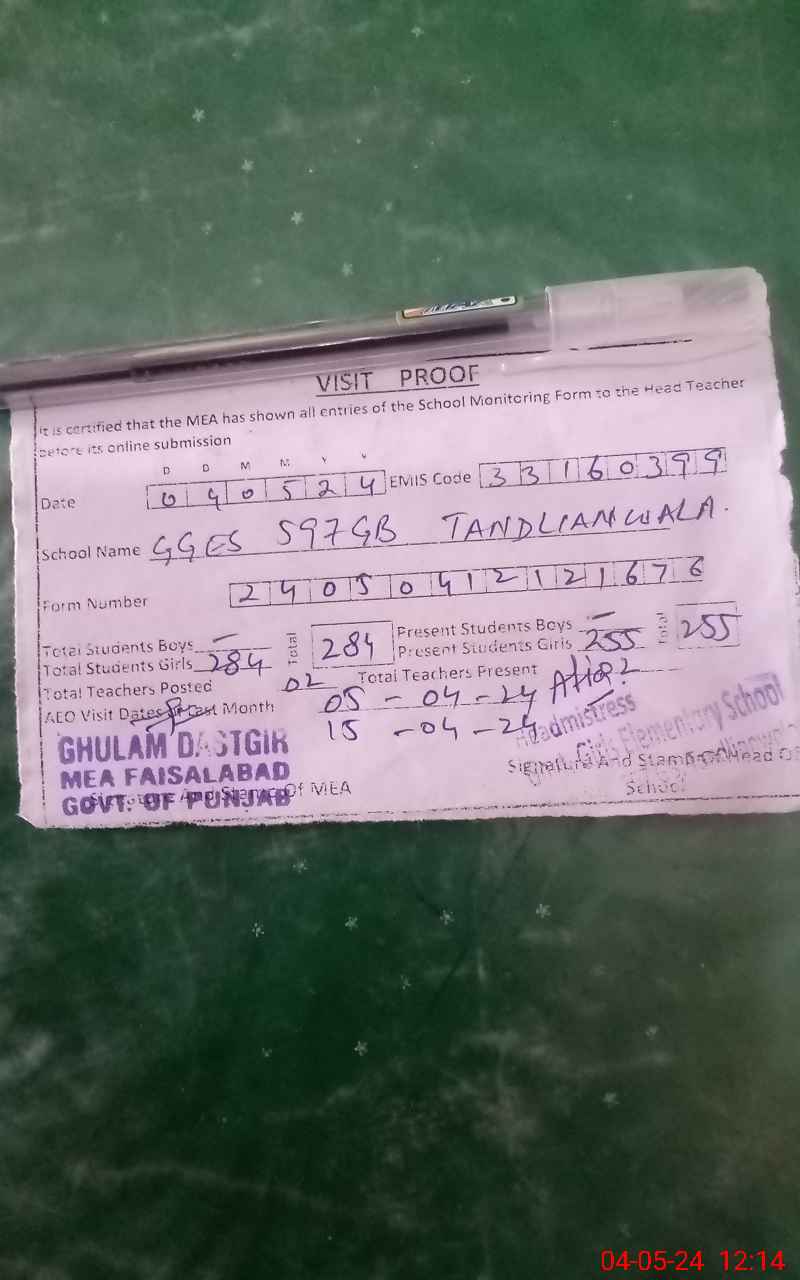 VISIT PROOF
It is certified that the MEA has shown all entries of the School Monitoring Form to the Head Teacher
before its online submission
D D M M Y Y
Date 040524 EMIS Code 33160399
School Name GGES 597GB TANDLIANWALA.
Form Number 24050412121676
Total Students Boys — Total 284 Present Students Boys — Total 255
Total Students Girls 284 Present Students Girls 255
Total Teachers Posted 02 Total Teachers Present 2
AEO Visit Dates Last Month 05-04-24
15-04-24
GHULAM DASTGIR
MEA FAISALABAD
GOVT. OF PUNJAB
Of MEA
Headmistress
Girls Elementary School
Signature And Stamp Of Head Of
School
04-05-24 12:14